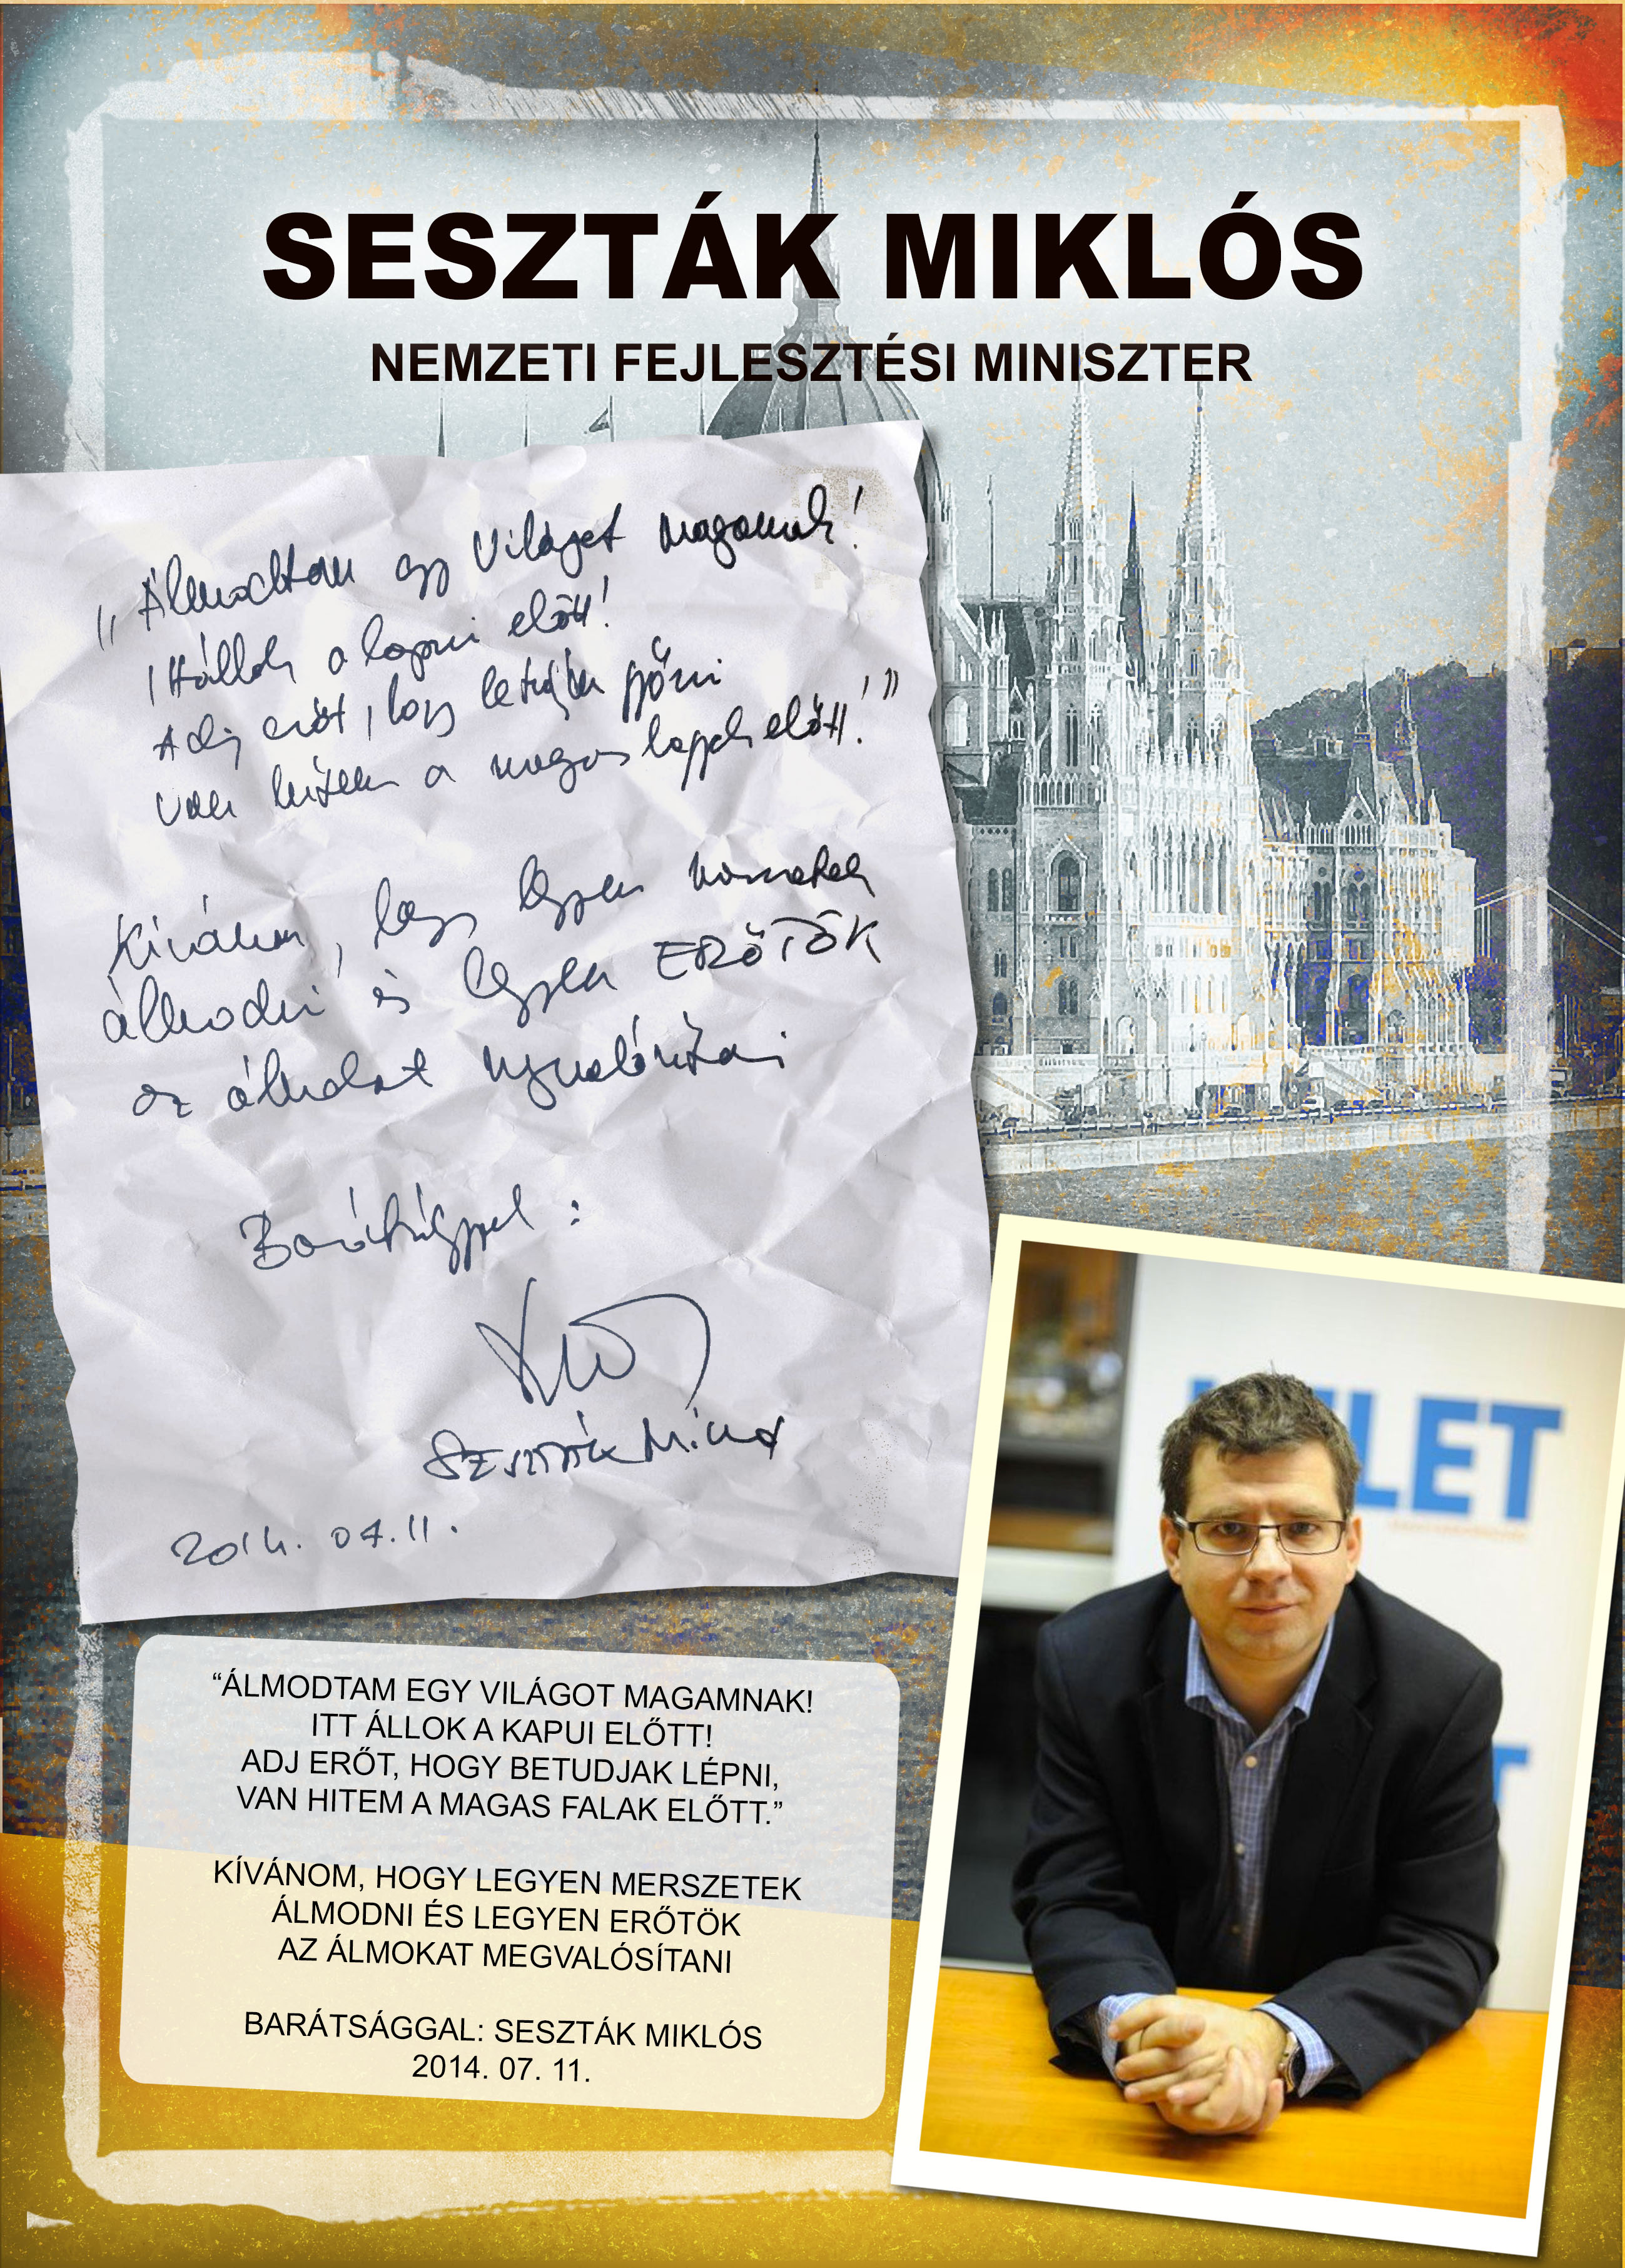 SESZTÁK MIKLÓS
NEMZETI FEJLESZTÉSI MINISZTER
„Álmodtam egy Világot magamnak!
Itt állok a kapui előtt!
Adj erőt, hogy betudjak lépni
van hitem a magas falak előtt!”
Kívánom, hogy legyen merszetek
álmodni és legyen ERŐTÖK
az álmokat megvalósítani
Barátsággal:
Seszták Miklós
2014. 07. 11.
LET
“ÁLMODTAM EGY VILÁGOT MAGAMNAK!
ITT ÁLLOK A KAPUI ELŐTT!
ADJ ERŐT, HOGY BETUDJAK LÉPNI,
VAN HITEM A MAGAS FALAK ELŐTT.”
KÍVÁNOM, HOGY LEGYEN MERSZETEK
ÁLMODNI ÉS LEGYEN ERŐTÖK
AZ ÁLMOKAT MEGVALÓSÍTANI
BARÁTSÁGGAL: SESZTÁK MIKLÓS
2014. 07. 11.